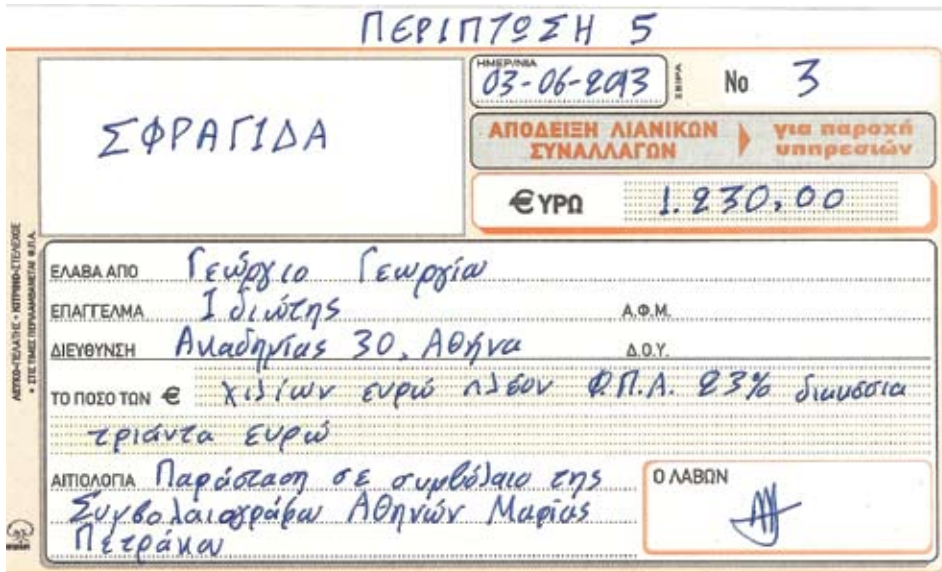 ΠΕΡΙΠΤΩΣΗ 5
ΣΦΡΑΓΙΔΑ
ΗΜΕΡ/ΝΙΑ
03-06-2013
ΣΕΙΡΑ
Νο 3
ΑΠΟΔΕΙΞΗ ΛΙΑΝΙΚΩΝ ΣΥΝΑΛΛΑΓΩΝ
για παροχή υπηρεσιών
€ΥΡΩ 1.230,00
ΕΛΑΒΑ ΑΠΟ Γεώργιο Γεωργίου
ΕΠΑΓΓΕΛΜΑ Ιδιώτης Α.Φ.Μ.
ΔΙΕΥΘΥΝΣΗ Ακαδημίας 30, Αθήνα Δ.Ο.Υ.
ΤΟ ΠΟΣΟ ΤΩΝ € χιλίων ευρώ πλέον Φ.Π.Α. 23% διακόσια
τριάντα ευρώ
ΑΙΤΙΟΛΟΓΙΑ Παράσταση σε συμβόλαιο της
Συμβολαιογράφου Αθηνών Μαρίας
Πετράκου
Ο ΛΑΒΩΝ
ΛΕΥΚΟ-ΠΕΛΑΤΗΣ • ΚΙΤΡΙΝΟ-ΣΤΕΛΕΧΟΣ
• ΣΤΙΣ ΤΙΜΕΣ ΠΕΡΙΛΑΜΒΑΝΕΤΑΙ Φ.Π.Α.